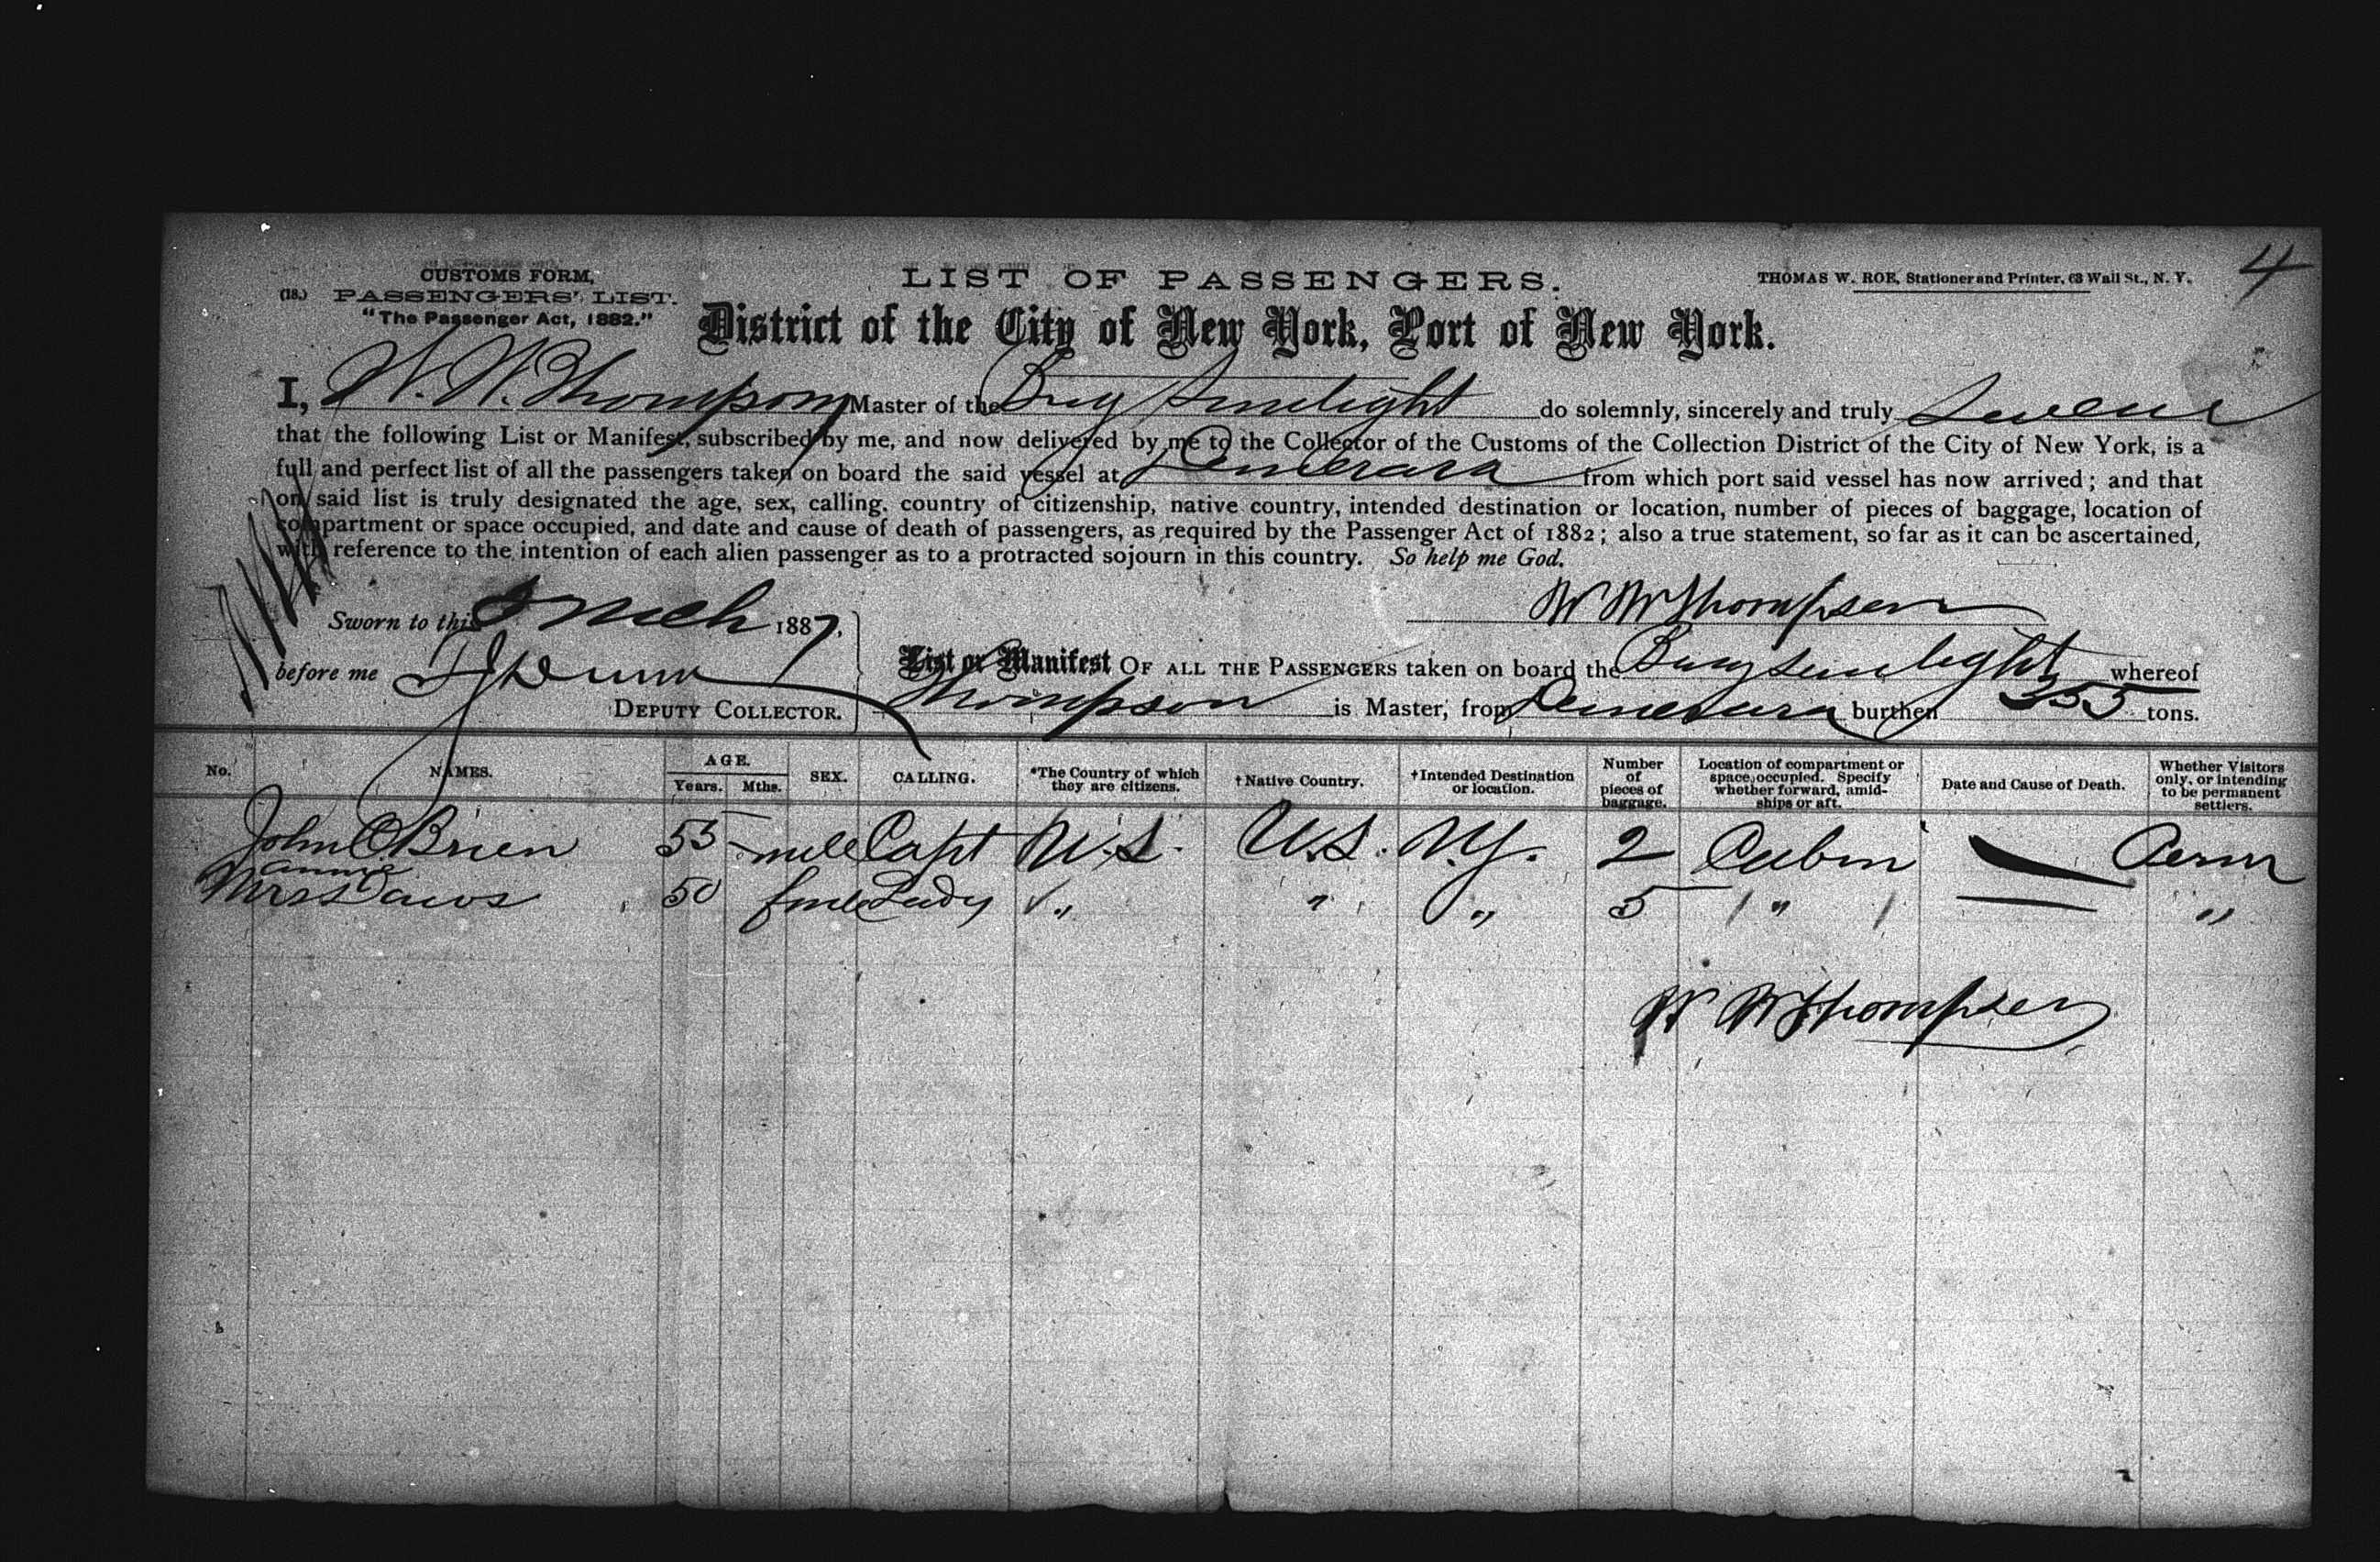 4
CUSTOMS FORM,
(18.) PASSENGERS' LIST.
"The Passenger Act, 1882."
LIST OF PASSENGERS.
THOMAS W. ROE, Stationer and Printer, 63 Wall St., N. Y.
District of the City of New York, Port of New York.
I, W. W. Thompson Master of the Brig Sunlight do solemnly, sincerely and truly Swear
that the following List or Manifest, subscribed by me, and now delivered by me to the Collector of the Customs of the Collection District of the City of New York, is a
full and perfect list of all the passengers taken on board the said vessel at Demerara from which port said vessel has now arrived; and that
on said list is truly designated the age, sex, calling, country of citizenship, native country, intended destination or location, number of pieces of baggage, location of
compartment or space occupied, and date and cause of death of passengers, as required by the Passenger Act of 1882; also a true statement, so far as it can be ascertained,
with reference to the intention of each alien passenger as to a protracted sojourn in this country. So help me God.
W W Thompson
Sworn to this Mch 1887.
before me
DEPUTY COLLECTOR.
List or Manifest OF ALL THE PASSENGERS taken on board the Brig Sunlight whereof
Thompson is Master, from Demerara burthen 355 tons.
No. NAMES. AGE. Years. Mths. SEX. CALLING. *The Country of which they are citizens. †Native Country. †Intended Destination or location. Number of pieces of baggage. Location of compartment or space occupied. Specify whether forward, amidships or aft. Date and Cause of Death. Whether Visitors only, or intending to be permanent settlers.
John O Brien 55 male Capt U.S. U.S. N.Y. 2 Cabin — Perm
Annie
Mrs Daws 50 fmle Lady " " " 5 " — "
W W Thompson